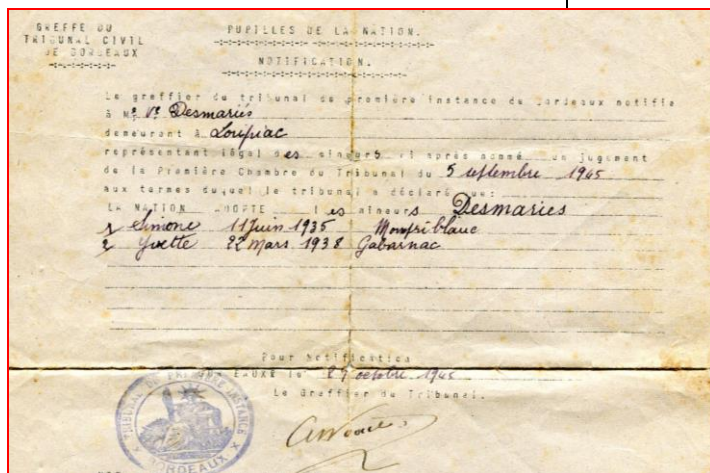 GREFFE DU
TRIBUNAL CIVIL
DE BORDEAUX
PUPILLES DE LA NATION.
NOTIFICATION.
Le greffier du tribunal de première instance de Bordeaux notifie
à Me Ve Desmariés
demeurant à Loupiac
représentant légal des mineurs ci après nommé un jugement
de la Première Chambre du Tribunal du 5 septembre 1945
aux termes duquel le tribunal a déclaré que:
LA NATION ADOPTE les mineurs Desmaries
1 Simone 11 Juin 1935
2 Yvette 22 Mars 1938 Gabarnac
Pour Notification
BORDEAUX le 27 octobre 1945
Le Greffier du Tribunal.
TRIBUNAL DE PREMIERE INSTANCE
BORDEAUX